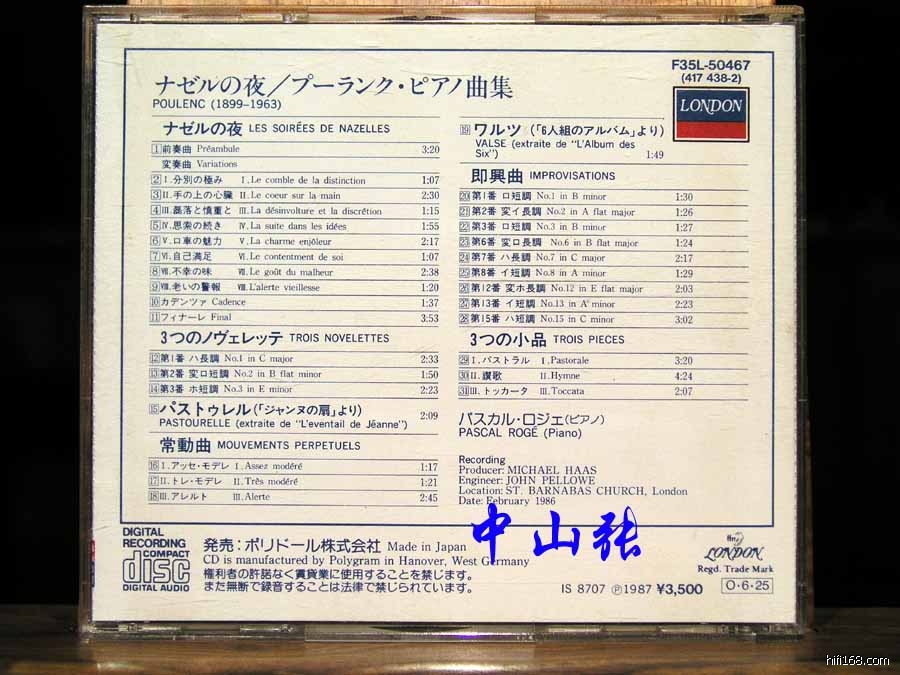 F35L-50467
(417 438-2)
LONDON
ナゼルの夜／プーランク・ピアノ曲集
POULENC (1899-1963)
ナゼルの夜 LES SOIRÉES DE NAZELLES
1 前奏曲 Préambule 3:20
変奏曲 Variations
2 I.分別の極み I.Le comble de la distinction 1:07
3 II.手の上の心臓 II.Le coeur sur la main 2:30
4 III.暴落と慎重と III.La désinvolture et la discrétion 1:15
5 IV.思索の続き IV.La suite dans les idées 1:55
6 V.口車の魅力 V.La charme enjôleur 2:17
7 VI.自己満足 VI.Le contentment de soi 1:07
8 VII.不幸の味 VII.Le goût du malheur 2:38
9 VIII.老いの警報 VIII.L'alerte vieillesse 1:20
10 カデンツァ Cadence 1:37
11 フィナーレ Final 3:53
3つのノヴェレッテ TROIS NOVELETTES
12 第1番 ハ長調 No.1 in C major 2:33
13 第2番 変ロ短調 No.2 in B flat minor 1:50
14 第3番 ホ短調 No.3 in E minor 2:23
15 パストゥレル(「ジャンヌの扇」より) 2:09
PASTOURELLE (extraite de "L'eventail de Jéanne")
常動曲 MOUVEMENTS PERPETUELS
16 I.アッセ・モデレ I.Assez modéré 1:17
17 II.トレ・モデレ II.Très modéré 1:21
18 III.アレルト III.Alerte 2:45
19 ワルツ (「6人組のアルバム」より)
VALSE (extraite de "L'Album des
Six") 1:49
即興曲 IMPROVISATIONS
20 第1番 ロ短調 No.1 in B minor 1:30
21 第2番 変イ長調 No.2 in A flat major 1:26
22 第3番 ロ短調 No.3 in B minor 1:27
23 第6番 変ロ長調 No.6 in B flat major 1:24
24 第7番 ハ長調 No.7 in C major 2:17
25 第8番 イ短調 No.8 in A minor 1:29
26 第12番 変ホ長調 No.12 in E flat major 2:03
27 第13番 イ短調 No.13 in A minor 2:23
28 第15番 ハ短調 No.15 in C minor 3:02
3つの小品 TROIS PIECES
29 I.パストラル I.Pastorale 3:20
30 II.讃歌 II.Hymne 4:24
31 III.トッカータ III.Toccata 2:07
パスカル・ロジェ(ピアノ)
PASCAL ROGÉ (Piano)
Recording
Producer: MICHAEL HAAS
Engineer: JOHN PELLOWE
Location: ST. BARNABAS CHURCH, London
Date: February 1986
中山张
DIGITAL
RECORDING
COMPACT
disc
DIGITAL AUDIO
発売：ポリドール株式会社 Made in Japan
CD is manufactured by Polygram in Hanover, West Germany
権利者の許諾なく賃貸業に使用することを禁じます。
また無断で録音することは法律で禁じられています。
IS 8707 ℗1987 ¥3,500
LONDON
Regd. Trade Mark
O・6・25
hifi168.com